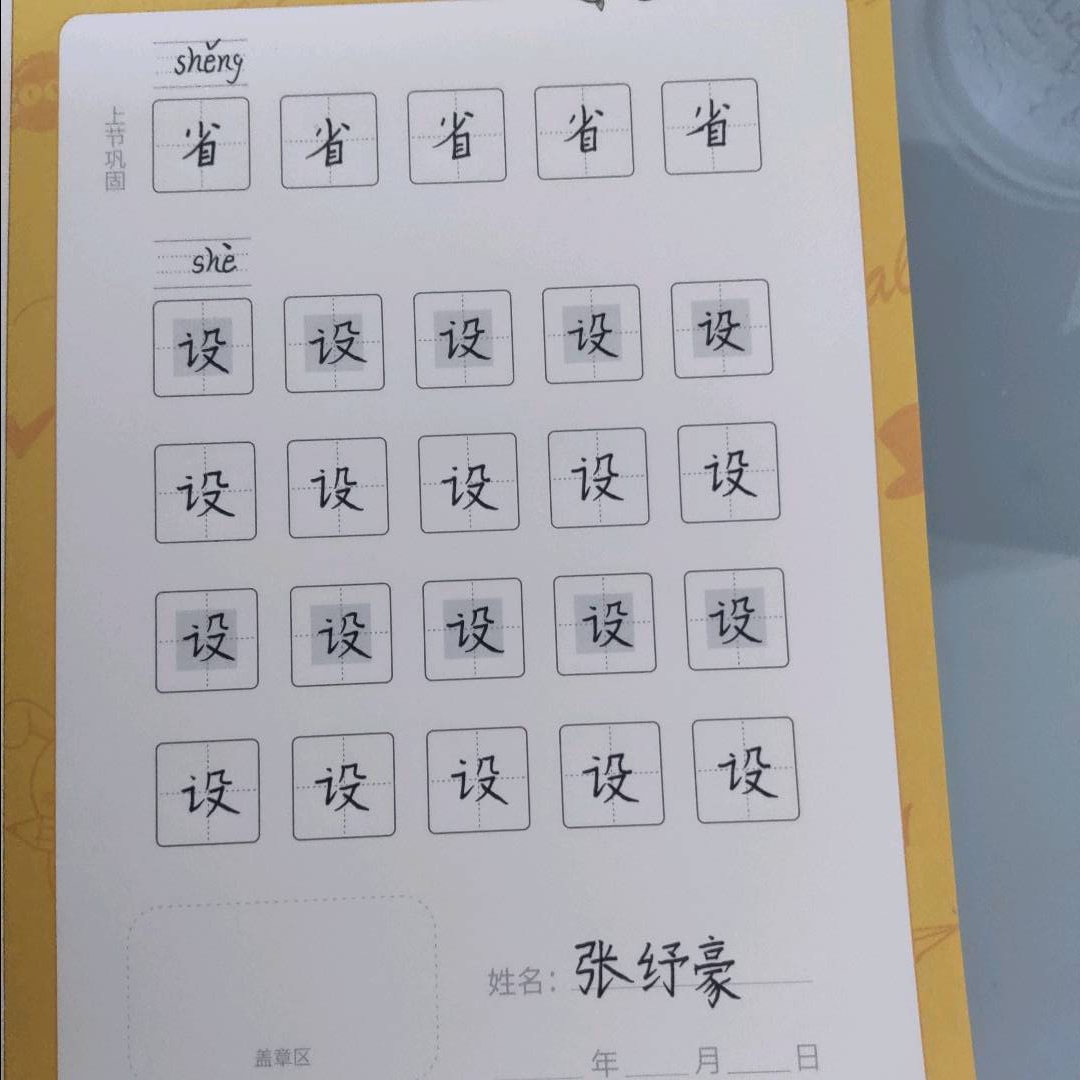 shěng
上节巩固
省 省 省 省 省
shè
设 设 设 设 设
设 设 设 设 设
设 设 设 设 设
设 设 设 设 设
姓名：张纾豪
盖章区
年 月 日